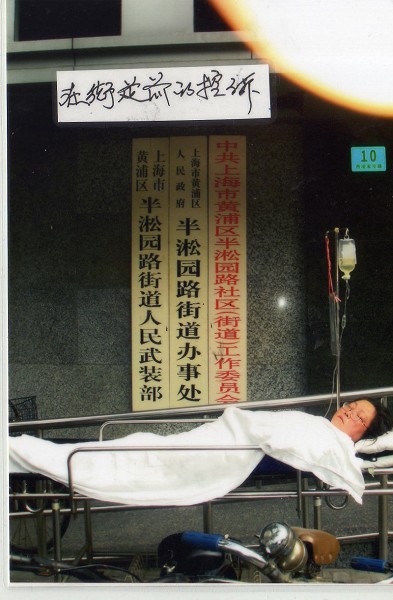 在街道前的控诉
中共上海市黄浦区半淞园路社区(街道)工作委员会
上海市黄浦区
人民政府
半淞园路街道办事处
上海市
黄浦区
半淞园路街道人民武装部
10